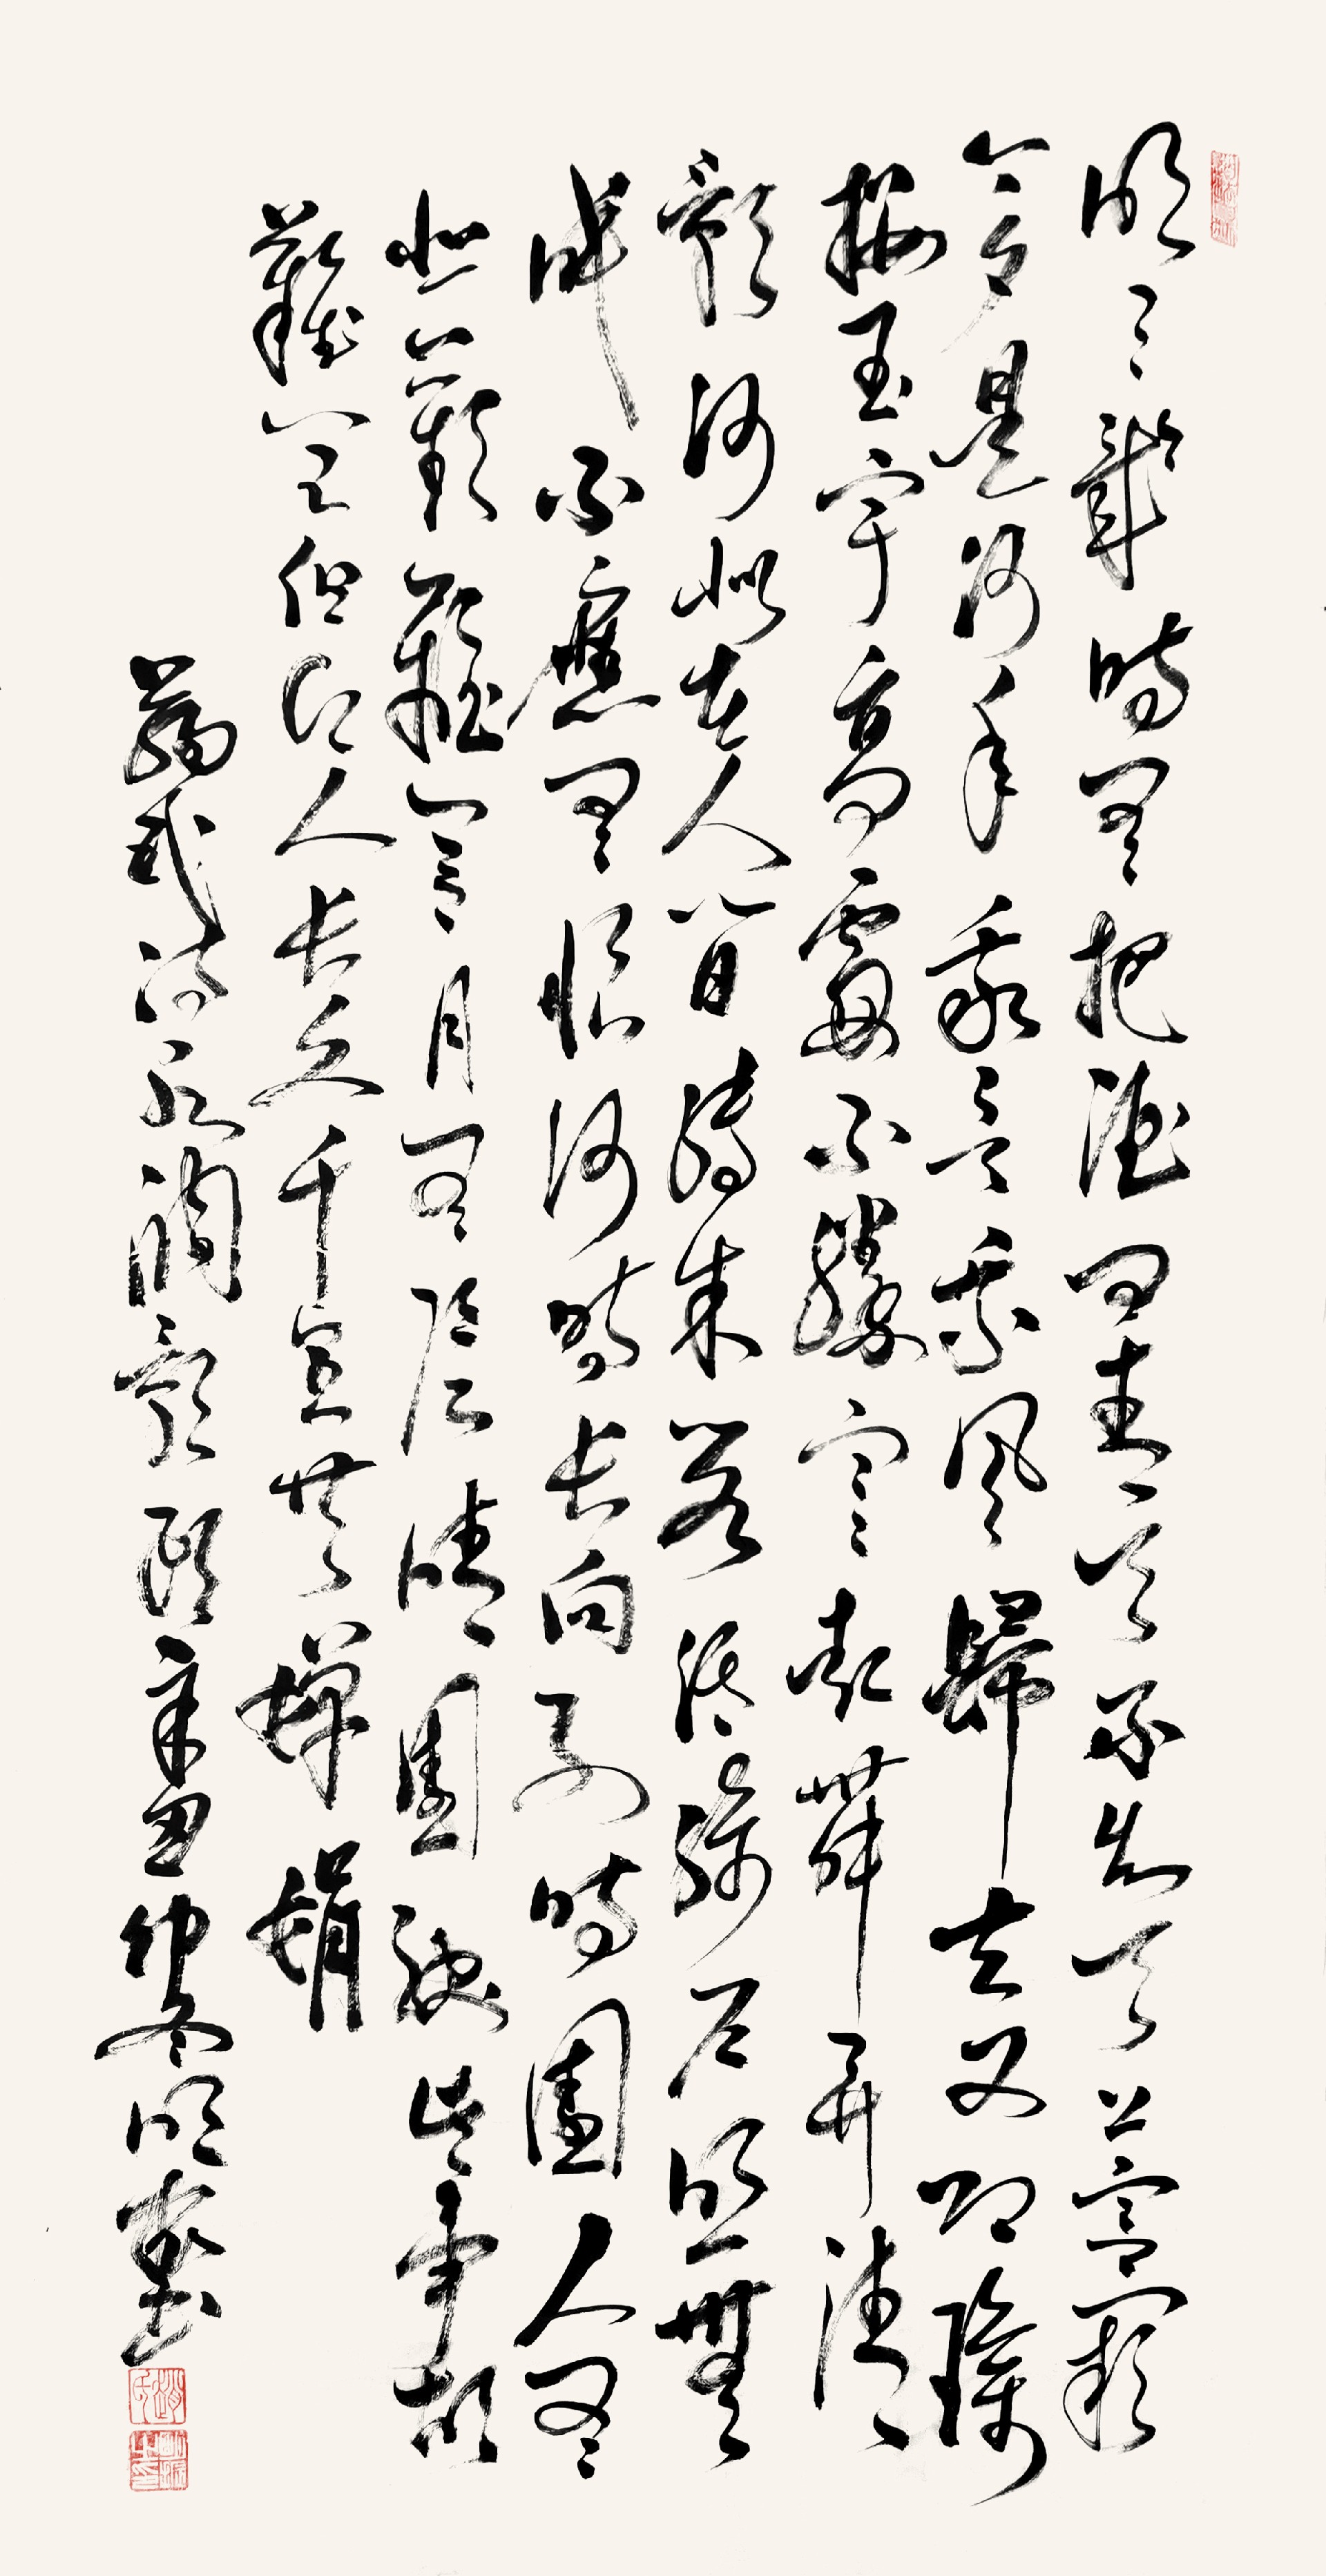 明月幾時有把酒問青天不知天上宮闕
今夕是何年我欲乘風歸去又恐瓊
樓玉宇高處不勝寒起舞弄清
影何似在人間轉朱閣低綺户照無
眠不應有恨何事長向别時圓人有
悲歡離合月有陰晴圓缺此事古
難全但願人長久千里共嬋娟
蘇軾詩水調歌頭辛丑仲冬明
趙氏